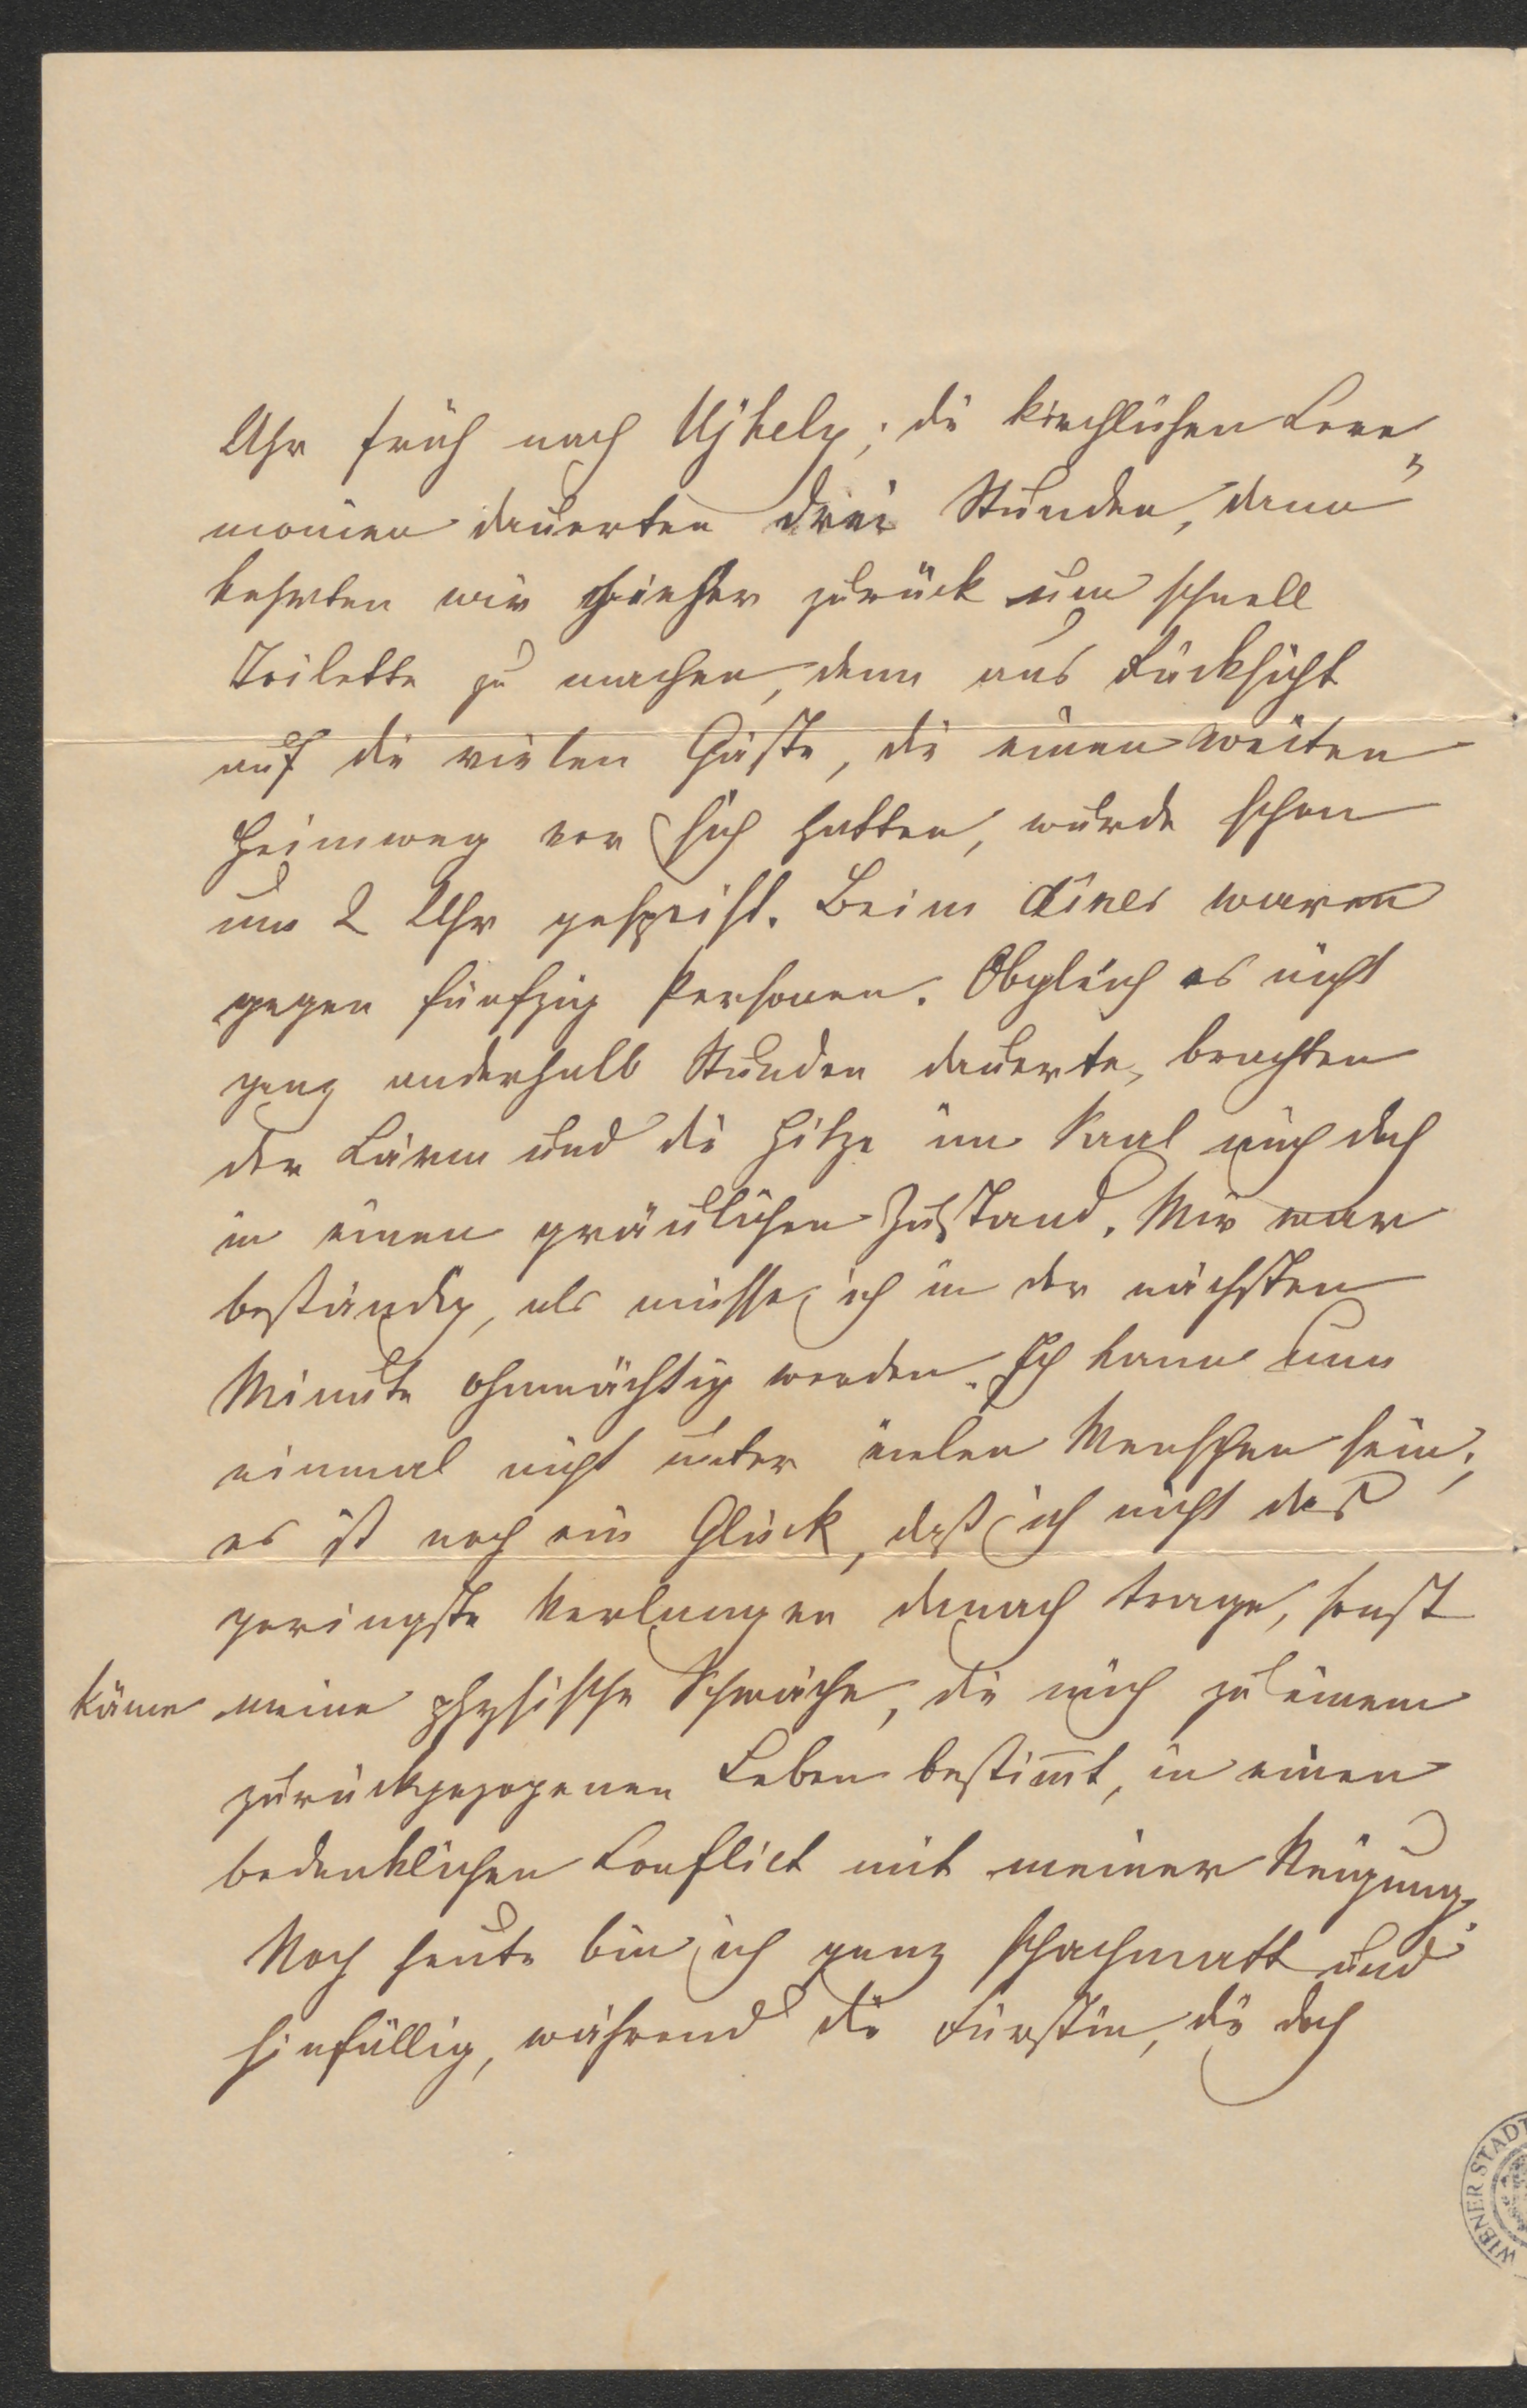 Uhr früh nach Ujhely; die kirchlichen Cere=
monien dauerten drei Stunden, dann
kehrten wir hieher zurück um schnell
Toilette zu machen, denn aus Rücksicht
auf die vielen Gäste, die einen weiten
Heimweg vor sich hatten, wurde schon
um 2 Uhr gespeist. Beim Diner waren
gegen fünfzig Personen. Obgleich es nicht
ganz anderhalb Stunden dauerte, brachten
der Lärm und die Hitze im Saal mich doch
in einen gräulichen Zustand. Mir war
beständig, als müsse ich in der nächsten
Minute ohnmächtig werden. Ich kann nun
einmal nicht unter vielen Menschen sein;
es ist noch ein Glück, daß ich nicht das
geringste Verlangen danach trage, sonst
käme meine physische Schwäche, die mich zu einem
zurückgezogenen Leben bestimmt, in einen
bedenklichen Conflict mit meiner Neigung.
Noch heute bin ich ganz schachmatt und
hinfällig, während die Fürstin, die doch
WIENER STADT